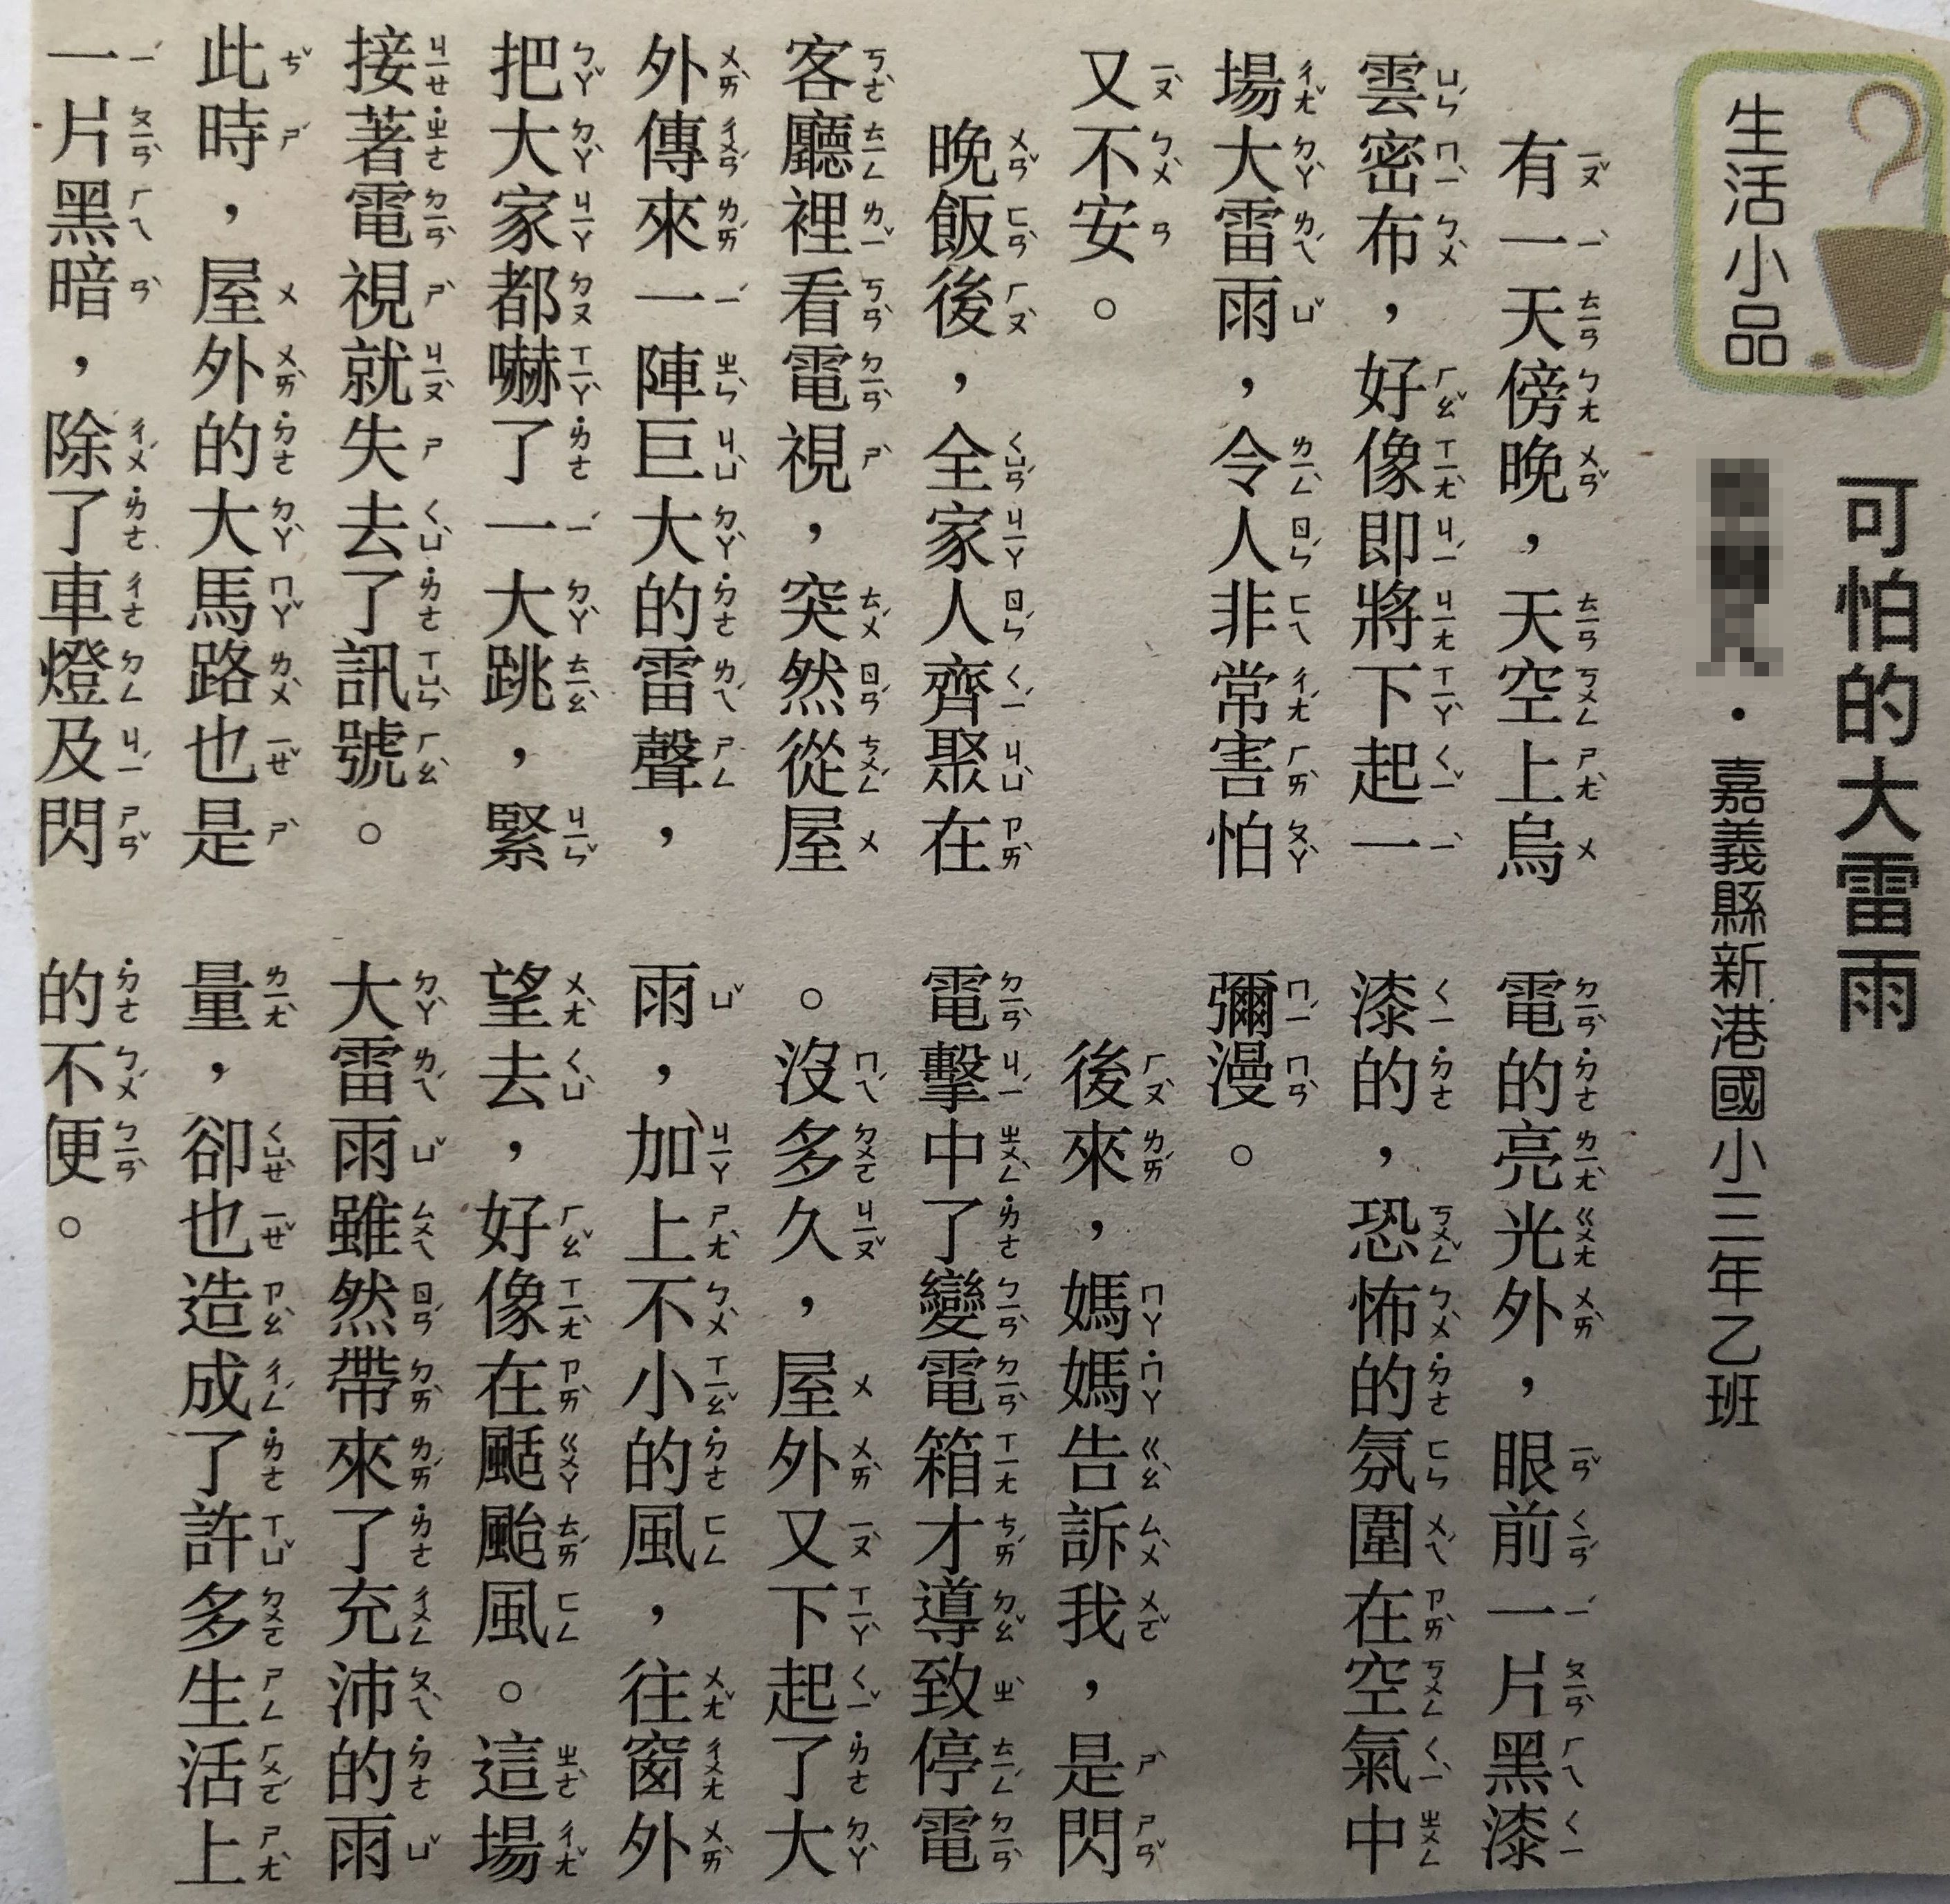 生活小品
可怕的大雷雨
・嘉義縣新港國小三年乙班
有一天傍晚，天空上烏
雲密布，好像即將下起一
場大雷雨，令人非常害怕
又不安。
晚飯後，全家人齊聚在
客廳裡看電視，突然從屋
外傳來一陣巨大的雷聲，
把大家都嚇了一大跳，緊
接著電視就失去了訊號。
此時，屋外的大馬路也是
一片黑暗，除了車燈及閃
電的亮光外，眼前一片黑漆
漆的，恐怖的氛圍在空氣中
彌漫。
後來，媽媽告訴我，是閃
電擊中了變電箱才導致停電
。沒多久，屋外又下起了大
雨，加上不小的風，往窗外
望去，好像在颳颱風。這場
大雷雨雖然帶來了充沛的雨
量，卻也造成了許多生活上
的不便。